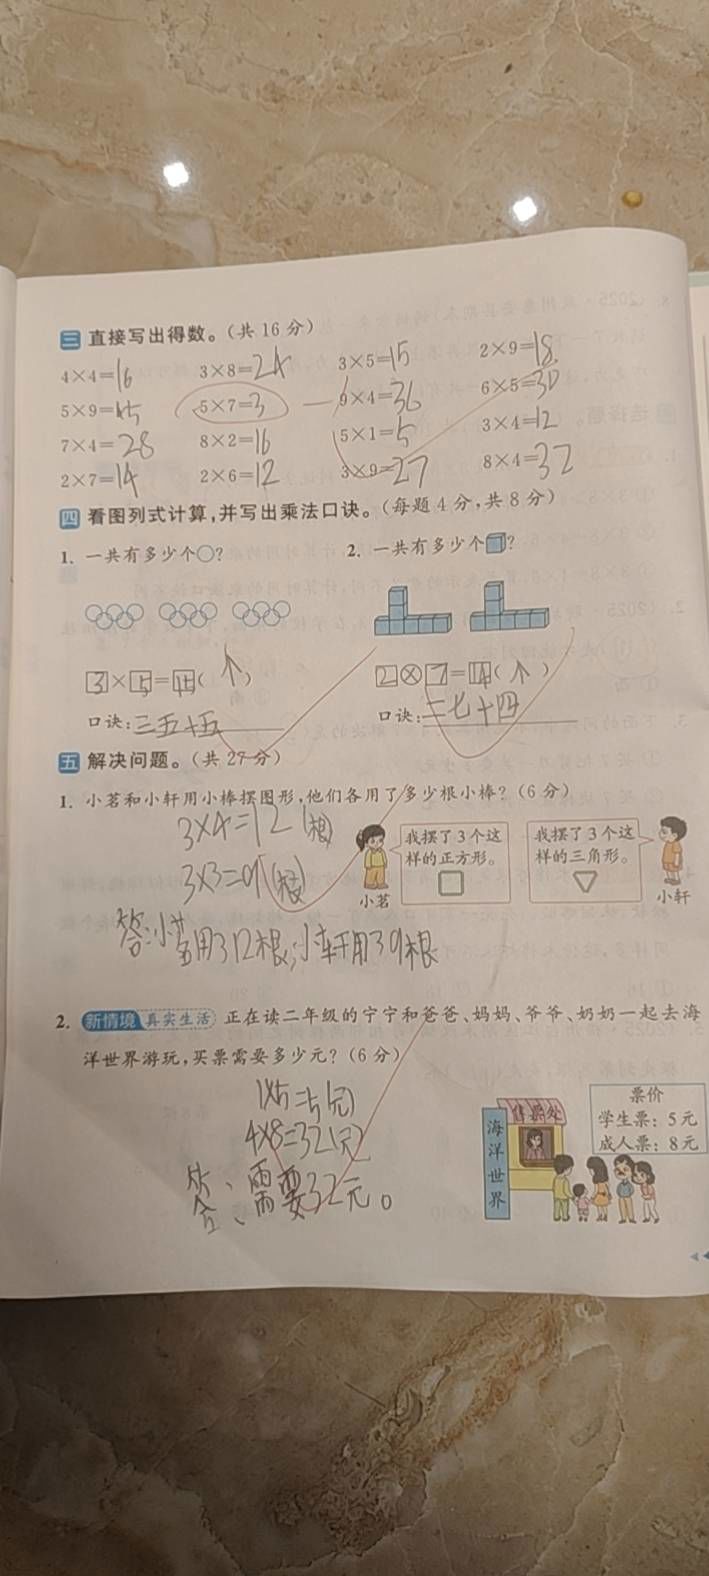 三 直接写出得数。(共 16 分)
4×4=16 3×8=24 3×5=15 2×9=18
5×9=45 5×7=3 9×4=36 6×5=30
7×4=28 8×2=16 5×1=5 3×4=12
2×7=14 2×6=12 3×9=27 8×4=32
四 看图列式计算,并写出乘法口诀。(每题 4 分,共 8 分)
1. 一共有多少个○? 2. 一共有多少个?
3×5=15(个) 2×7=14(个)
口诀:三五十五 口诀:二七十四
五 解决问题。(共 27 分)
1. 小茗和小轩用小棒摆图形,他们各用了多少根小棒?(6 分)
3×4=12(根)
3×3=9(根)
我摆了 3 个这
样的正方形。
小茗
我摆了 3 个这
样的三角形。
小轩
答:小茗用了12根,小轩用了9根
2. 新情境 真实生活 正在读二年级的宁宁和爸爸、妈妈、爷爷、奶奶一起去海
洋世界游玩,买票需要多少元?(6 分)
1×5=5(元)
4×8=32(元)
答:需要32元。
海洋世界
售票处
票价
学生票:5元
成人票:8元